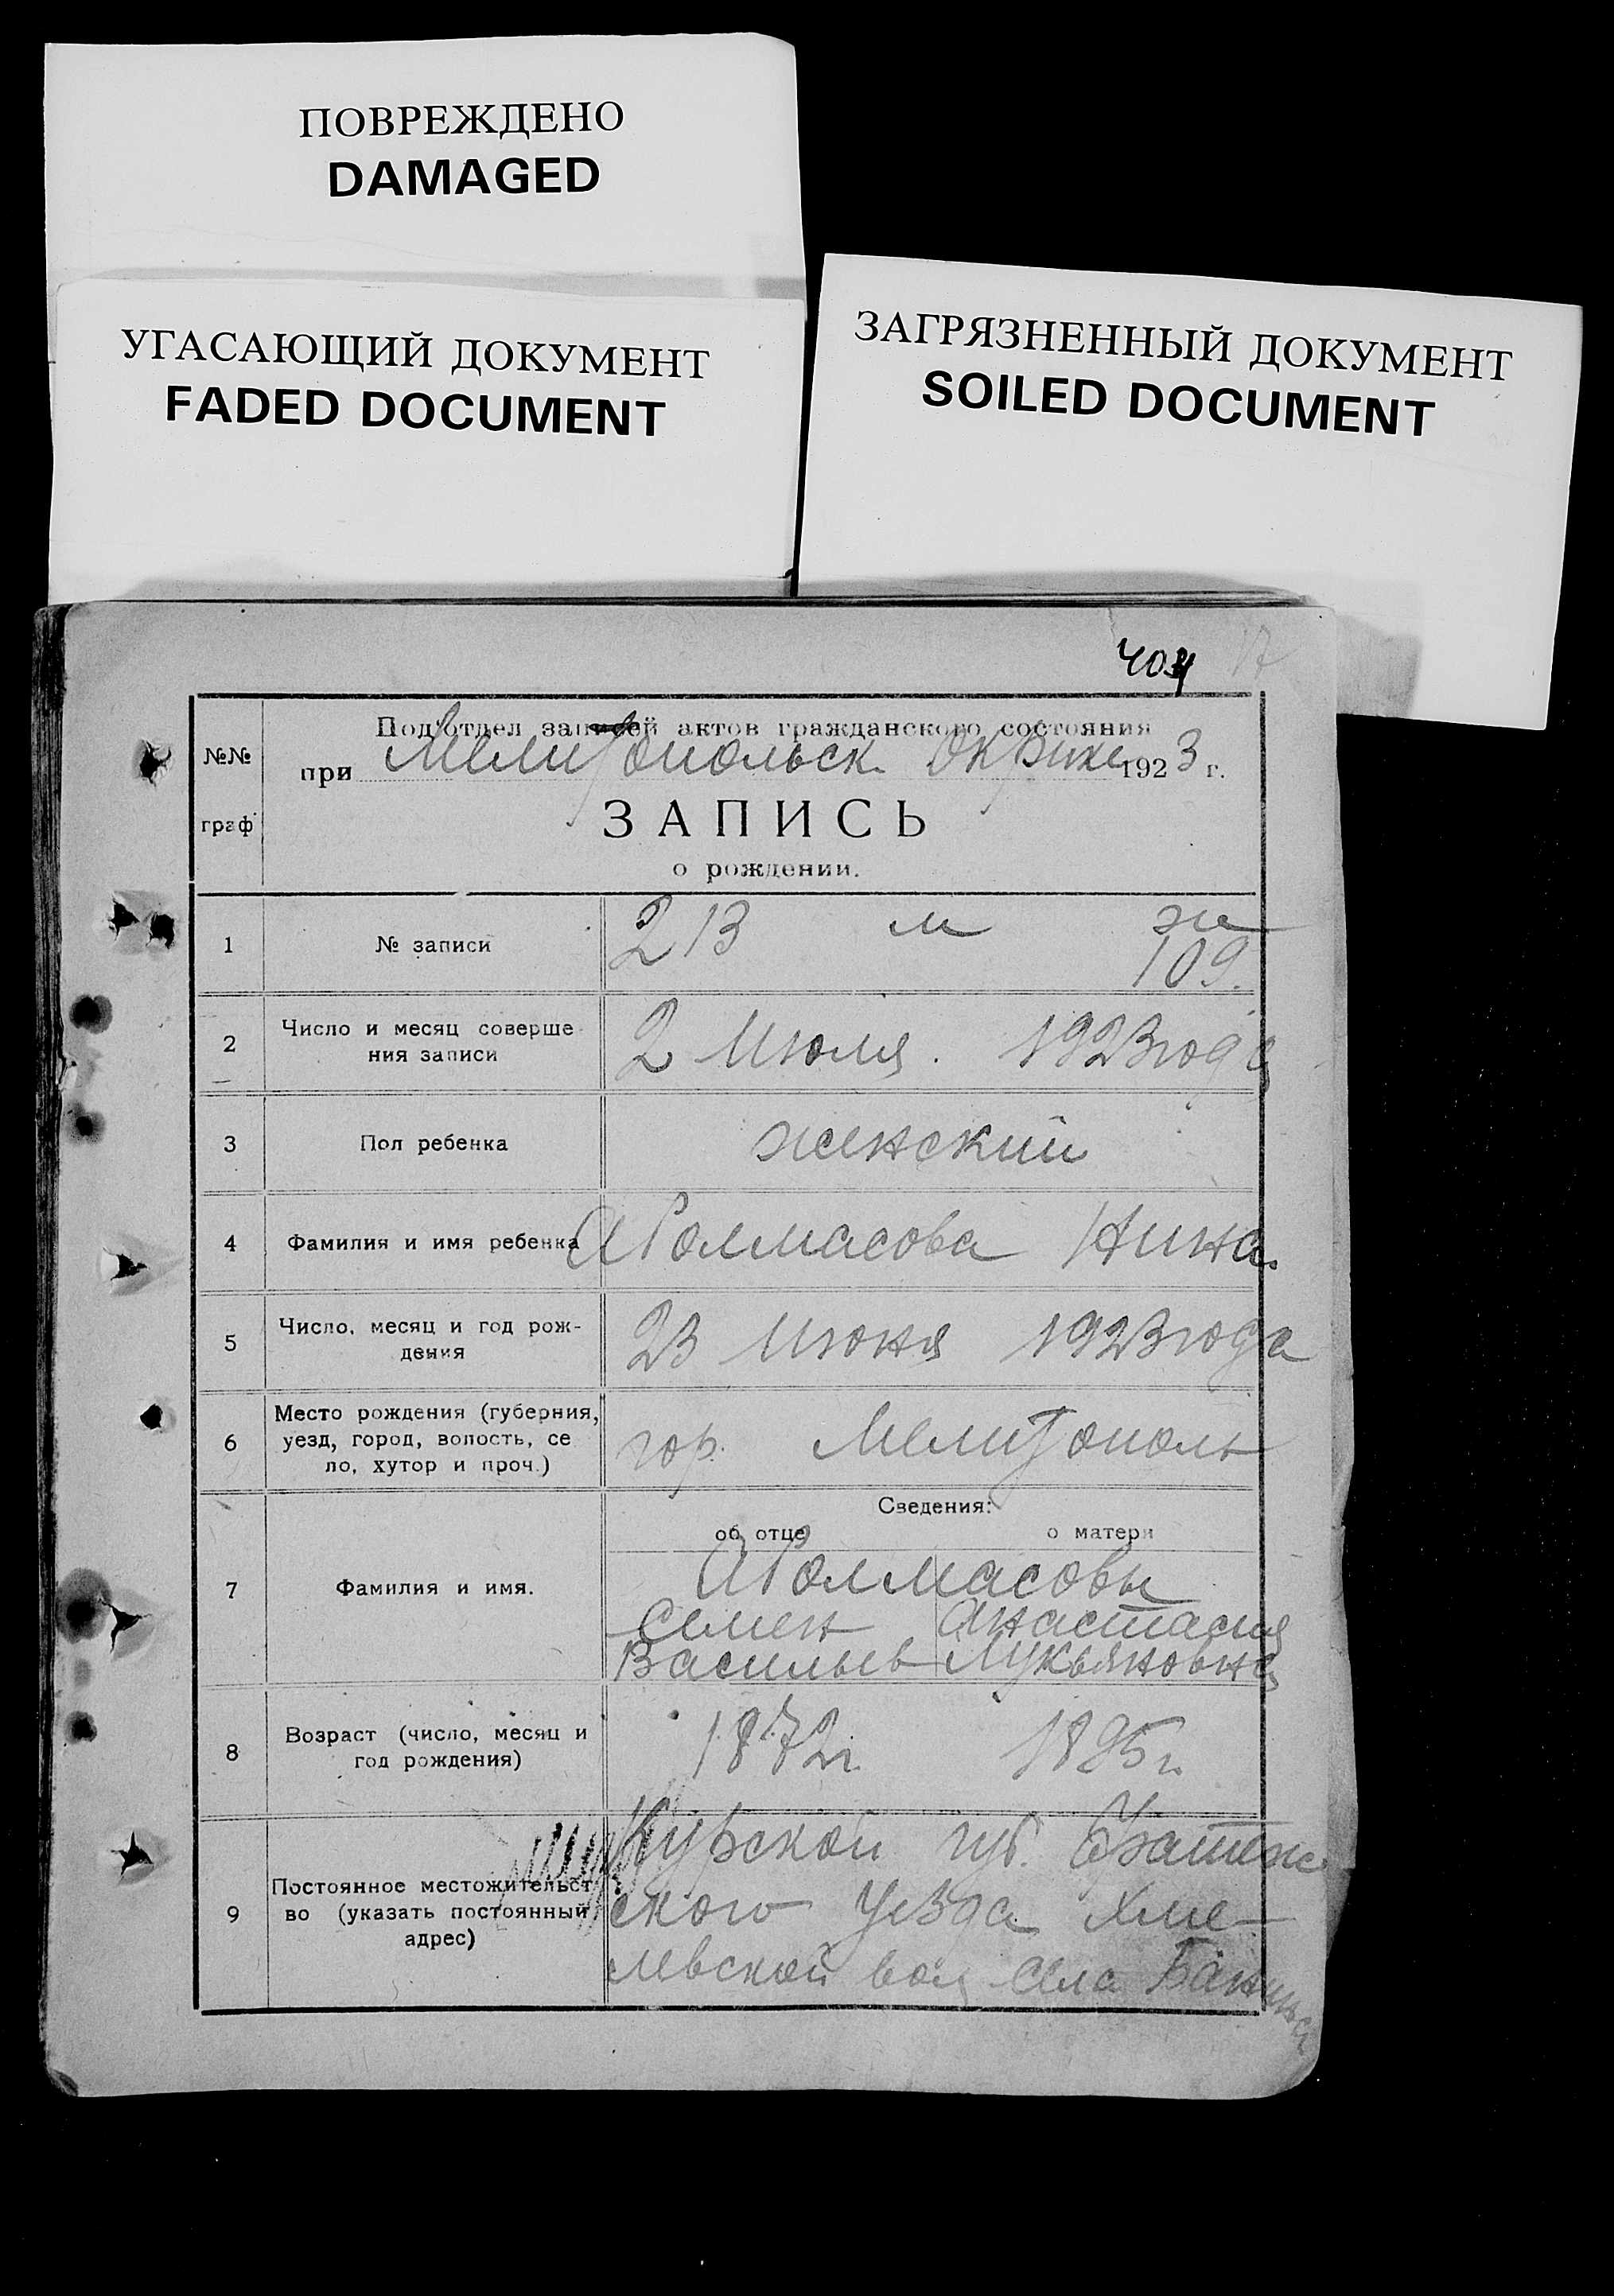 ПОВРЕЖДЕНО
DAMAGED
УГАСАЮЩИЙ ДОКУМЕНТ
FADED DOCUMENT
ЗАГРЯЗНЕННЫЙ ДОКУМЕНТ
SOILED DOCUMENT
№№
граф
Подотдел записей актов гражданского состояния
при Мелитопольск. Окрике 1923 г.
ЗАПИСЬ
о рождении.
1 № записи 213 м ж
109.
2 Число и месяц соверше
ния записи 2 Июля. 1923 года
3 Пол ребенка женский
4 Фамилия и имя ребенка Нина.
5 Число, месяц и год рож-
дения 23 Июня 1923 года
6 Место рождения (губерния,
уезд, город, волость, се
ло, хутор и проч.) гор. Мелитополь
Сведения:
об отце о матери
7 Фамилия и имя.
Семен Анастасия
Васильев Лукьяновна
8 Возраст (число, месяц и
год рождения) 1872 г. 1895 г.
9 Постоянное местожительст
во (указать постоянный
адрес)
Курской губ. Фатеж
ского уезда Хме-
левской вол села